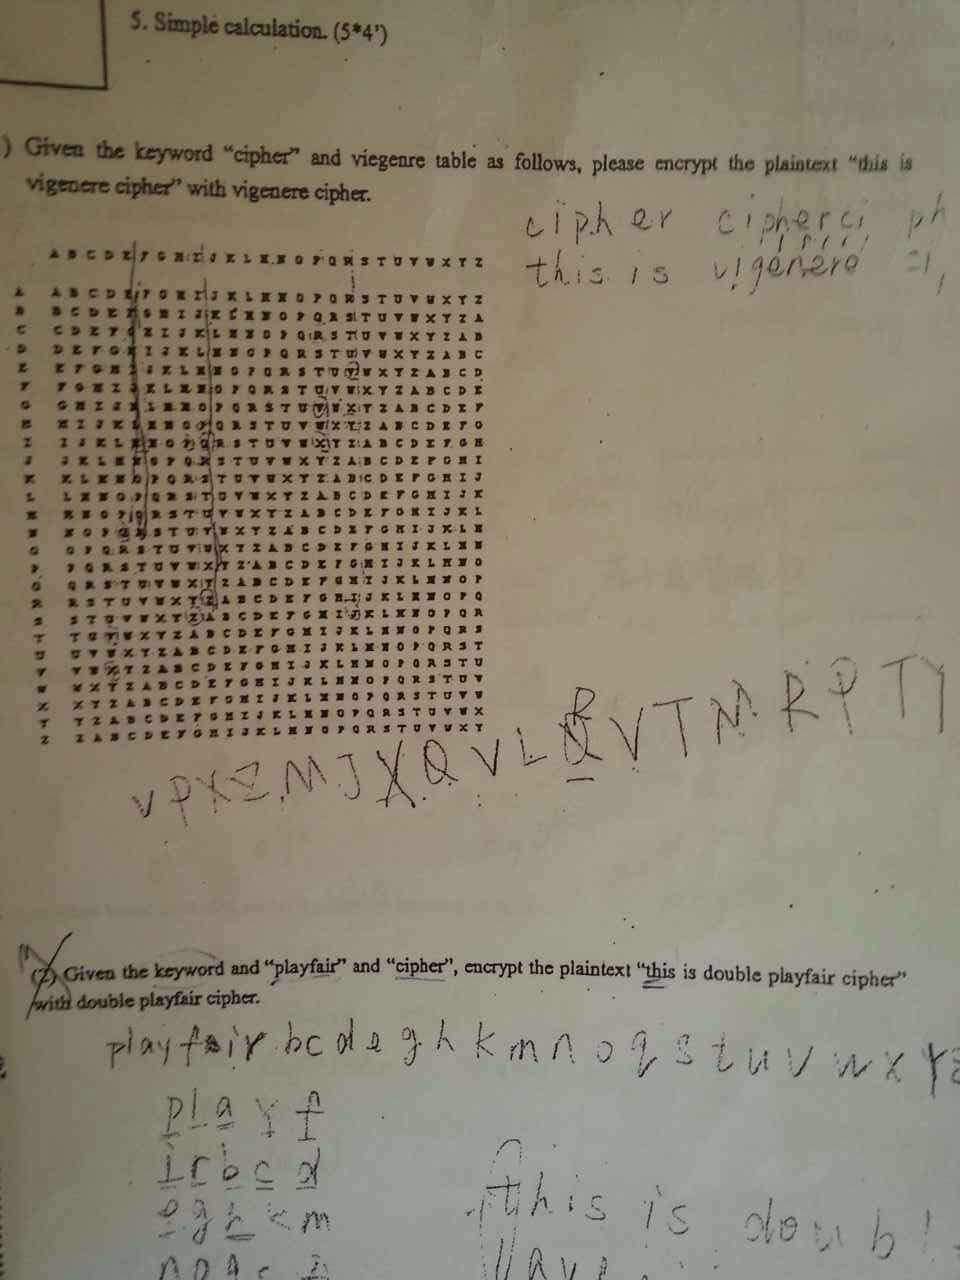 5. Simple calculation. (5*4')
) Given the keyword "cipher" and viegenre table as follows, please encrypt the plaintext "this is
vigenere cipher" with vigenere cipher.
cipher cipherci ph
this is vigenere
A B C D E F G H I J K L M N O P Q R S T U V W X Y Z
A A B C D E F G H I J K L M N O P Q R S T U V W X Y Z
B B C D E F G H I J K L M N O P Q R S T U V W X Y Z A
C C D E F G H I J K L M N O P Q R S T U V W X Y Z A B
D D E F G H I J K L M N O P Q R S T U V W X Y Z A B C
E E F G H I J K L M N O P Q R S T U V W X Y Z A B C D
F F G H I J K L M N O P Q R S T U V W X Y Z A B C D E
G G H I J K L M N O P Q R S T U V W X Y Z A B C D E F
H H I J K L M N O P Q R S T U V W X Y Z A B C D E F G
I I J K L M N O P Q R S T U V W X Y Z A B C D E F G H
J J K L M N O P Q R S T U V W X Y Z A B C D E F G H I
K K L M N O P Q R S T U V W X Y Z A B C D E F G H I J
L L M N O P Q R S T U V W X Y Z A B C D E F G H I J K
M M N O P Q R S T U V W X Y Z A B C D E F G H I J K L
N N O P Q R S T U V W X Y Z A B C D E F G H I J K L M
O O P Q R S T U V W X Y Z A B C D E F G H I J K L M N
P P Q R S T U V W X Y Z A B C D E F G H I J K L M N O
Q Q R S T U V W X Y Z A B C D E F G H I J K L M N O P
R R S T U V W X Y Z A B C D E F G H I J K L M N O P Q
S S T U V W X Y Z A B C D E F G H I J K L M N O P Q R
T T U V W X Y Z A B C D E F G H I J K L M N O P Q R S
U U V W X Y Z A B C D E F G H I J K L M N O P Q R S T
V V W X Y Z A B C D E F G H I J K L M N O P Q R S T U
W W X Y Z A B C D E F G H I J K L M N O P Q R S T U V
X X Y Z A B C D E F G H I J K L M N O P Q R S T U V W
Y Y Z A B C D E F G H I J K L M N O P Q R S T U V W X
Z Z A B C D E F G H I J K L M N O P Q R S T U V W X Y
VPXZMJXQVLRVTNRPTY
(2) Given the keyword and "playfair" and "cipher", encrypt the plaintext "this is double playfair cipher"
with double playfair cipher.
playfair bcdeghkmnoqstuvwxyz
playf
irbcd
eghkm
this is doubl